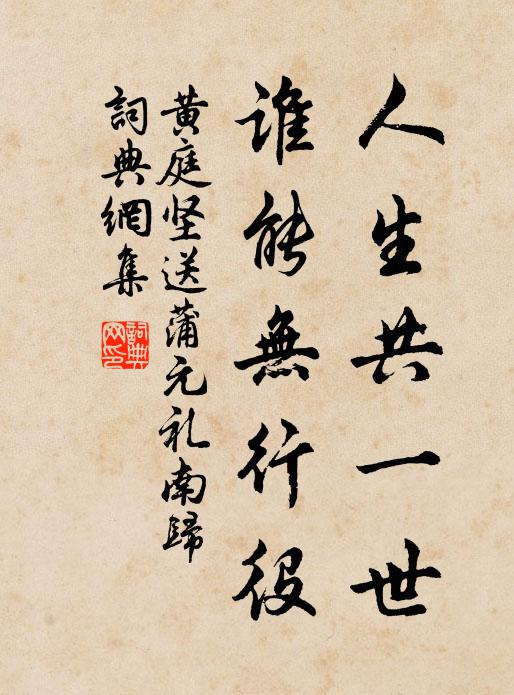 人生共一世
谁能無行役
黄庭坚送蒲元礼南歸
詞典網集
詞典网印